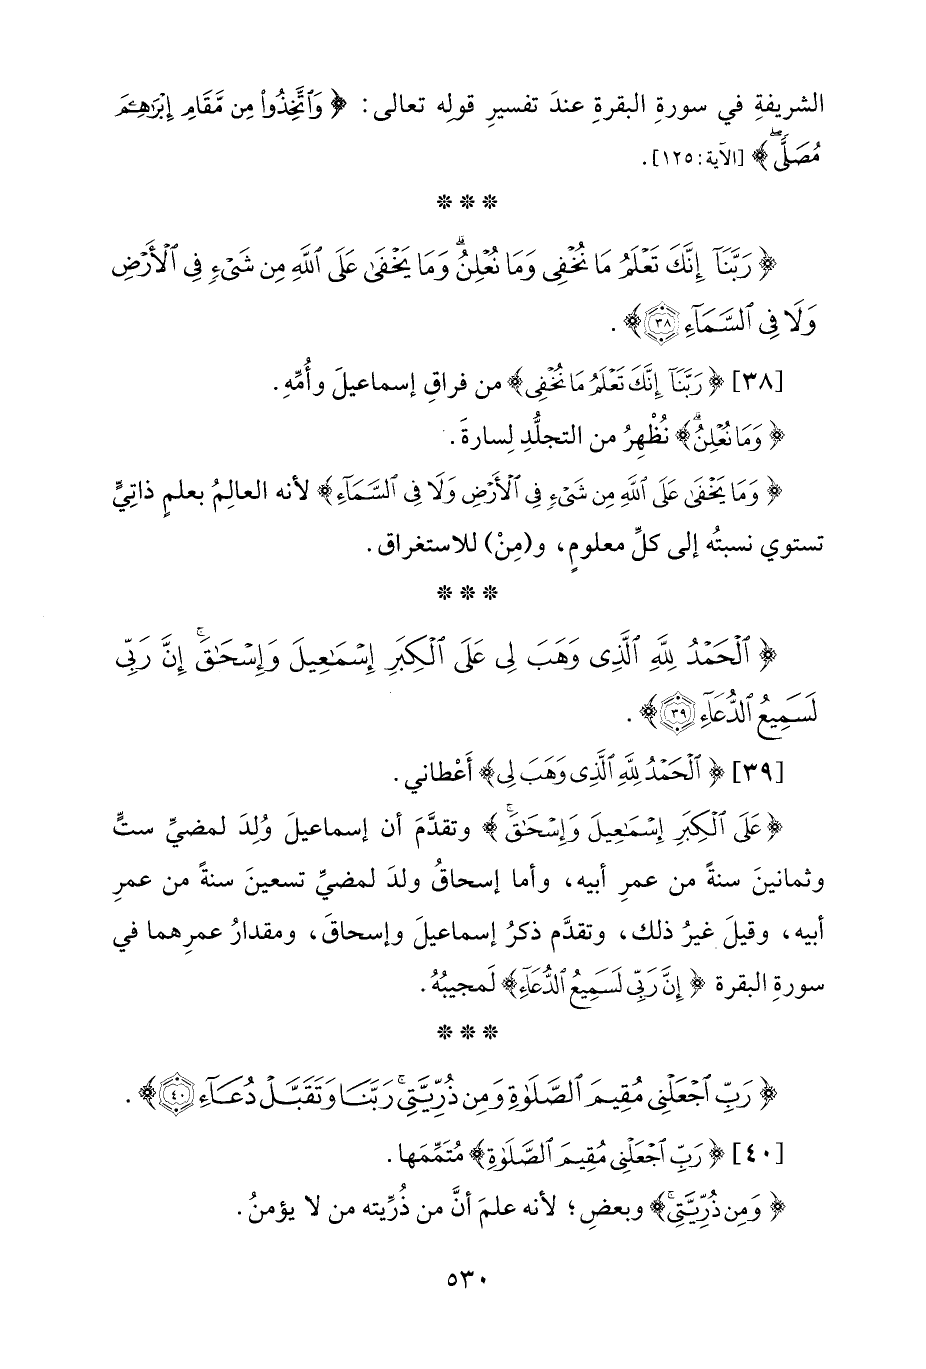 الشريفةِ في سورةِ البقرةِ عندَ تفسيرِ قولِه تعالى: ﴿ وَٱتَّخِذُواْ مِن مَّقَامِ إِبۡرَٰهِـۧمَ
مُصَلّٗىۖ ﴾ [الآية: ١٢٥].
* * *
﴿ رَبَّنَآ إِنَّكَ تَعۡلَمُ مَا نُخۡفِي وَمَا نُعۡلِنُۗ وَمَا يَخۡفَىٰ عَلَى ٱللَّهِ مِن شَيۡءٖ فِي ٱلۡأَرۡضِ
وَلَا فِي ٱلسَّمَآءِ ٣٨ ﴾ .
[٣٨] ﴿ رَبَّنَآ إِنَّكَ تَعۡلَمُ مَا نُخۡفِي﴾ من فراقِ إسماعيلَ وأُمِّهِ.
﴿ وَمَا نُعۡلِنُۗ﴾ نُظْهِرُ من التجلُّدِ لِسارةَ.
﴿ وَمَا يَخۡفَىٰ عَلَى ٱللَّهِ مِن شَيۡءٖ فِي ٱلۡأَرۡضِ وَلَا فِي ٱلسَّمَآءِ﴾ لأنه العالِمُ بعلمٍ ذاتِيٍّ
تستوي نسبتُه إلى كلِّ معلومٍ، و(مِنْ) للاستغراق.
* * *
﴿ ٱلۡحَمۡدُ لِلَّهِ ٱلَّذِي وَهَبَ لِي عَلَى ٱلۡكِبَرِ إِسۡمَٰعِيلَ وَإِسۡحَٰقَۚ إِنَّ رَبِّي
لَسَمِيعُ ٱلدُّعَآءِ ٣٩ ﴾ .
[٣٩] ﴿ ٱلۡحَمۡدُ لِلَّهِ ٱلَّذِي وَهَبَ لِي﴾ أَعْطاني.
﴿ عَلَى ٱلۡكِبَرِ إِسۡمَٰعِيلَ وَإِسۡحَٰقَۚ ﴾ وتقدَّمَ أن إسماعيلَ وُلِدَ لمضيِّ ستٍّ
وثمانينَ سنةً من عمرِ أبيه، وأما إسحاقُ ولدَ لمضيِّ تسعينَ سنةً من عمرِ
أبيه، وقيلَ غيرُ ذلك، وتقدَّم ذكرُ إسماعيلَ وإسحاقَ، ومقدارُ عمرِهما في
سورةِ البقرة ﴿ إِنَّ رَبِّي لَسَمِيعُ ٱلدُّعَآءِ﴾ لَمجيبُهُ.
* * *
﴿ رَبِّ ٱجۡعَلۡنِي مُقِيمَ ٱلصَّلَوٰةِ وَمِن ذُرِّيَّتِيۚ رَبَّنَا وَتَقَبَّلۡ دُعَآءِ ٤٠ ﴾ .
[٤٠] ﴿ رَبِّ ٱجۡعَلۡنِي مُقِيمَ ٱلصَّلَوٰةِ﴾ مُتَمِّمَها.
﴿ وَمِن ذُرِّيَّتِيۚ﴾ وبعضِ؛ لأنه علمَ أنَّ من ذُرِّيته من لا يؤمنُ.
٥٣٠